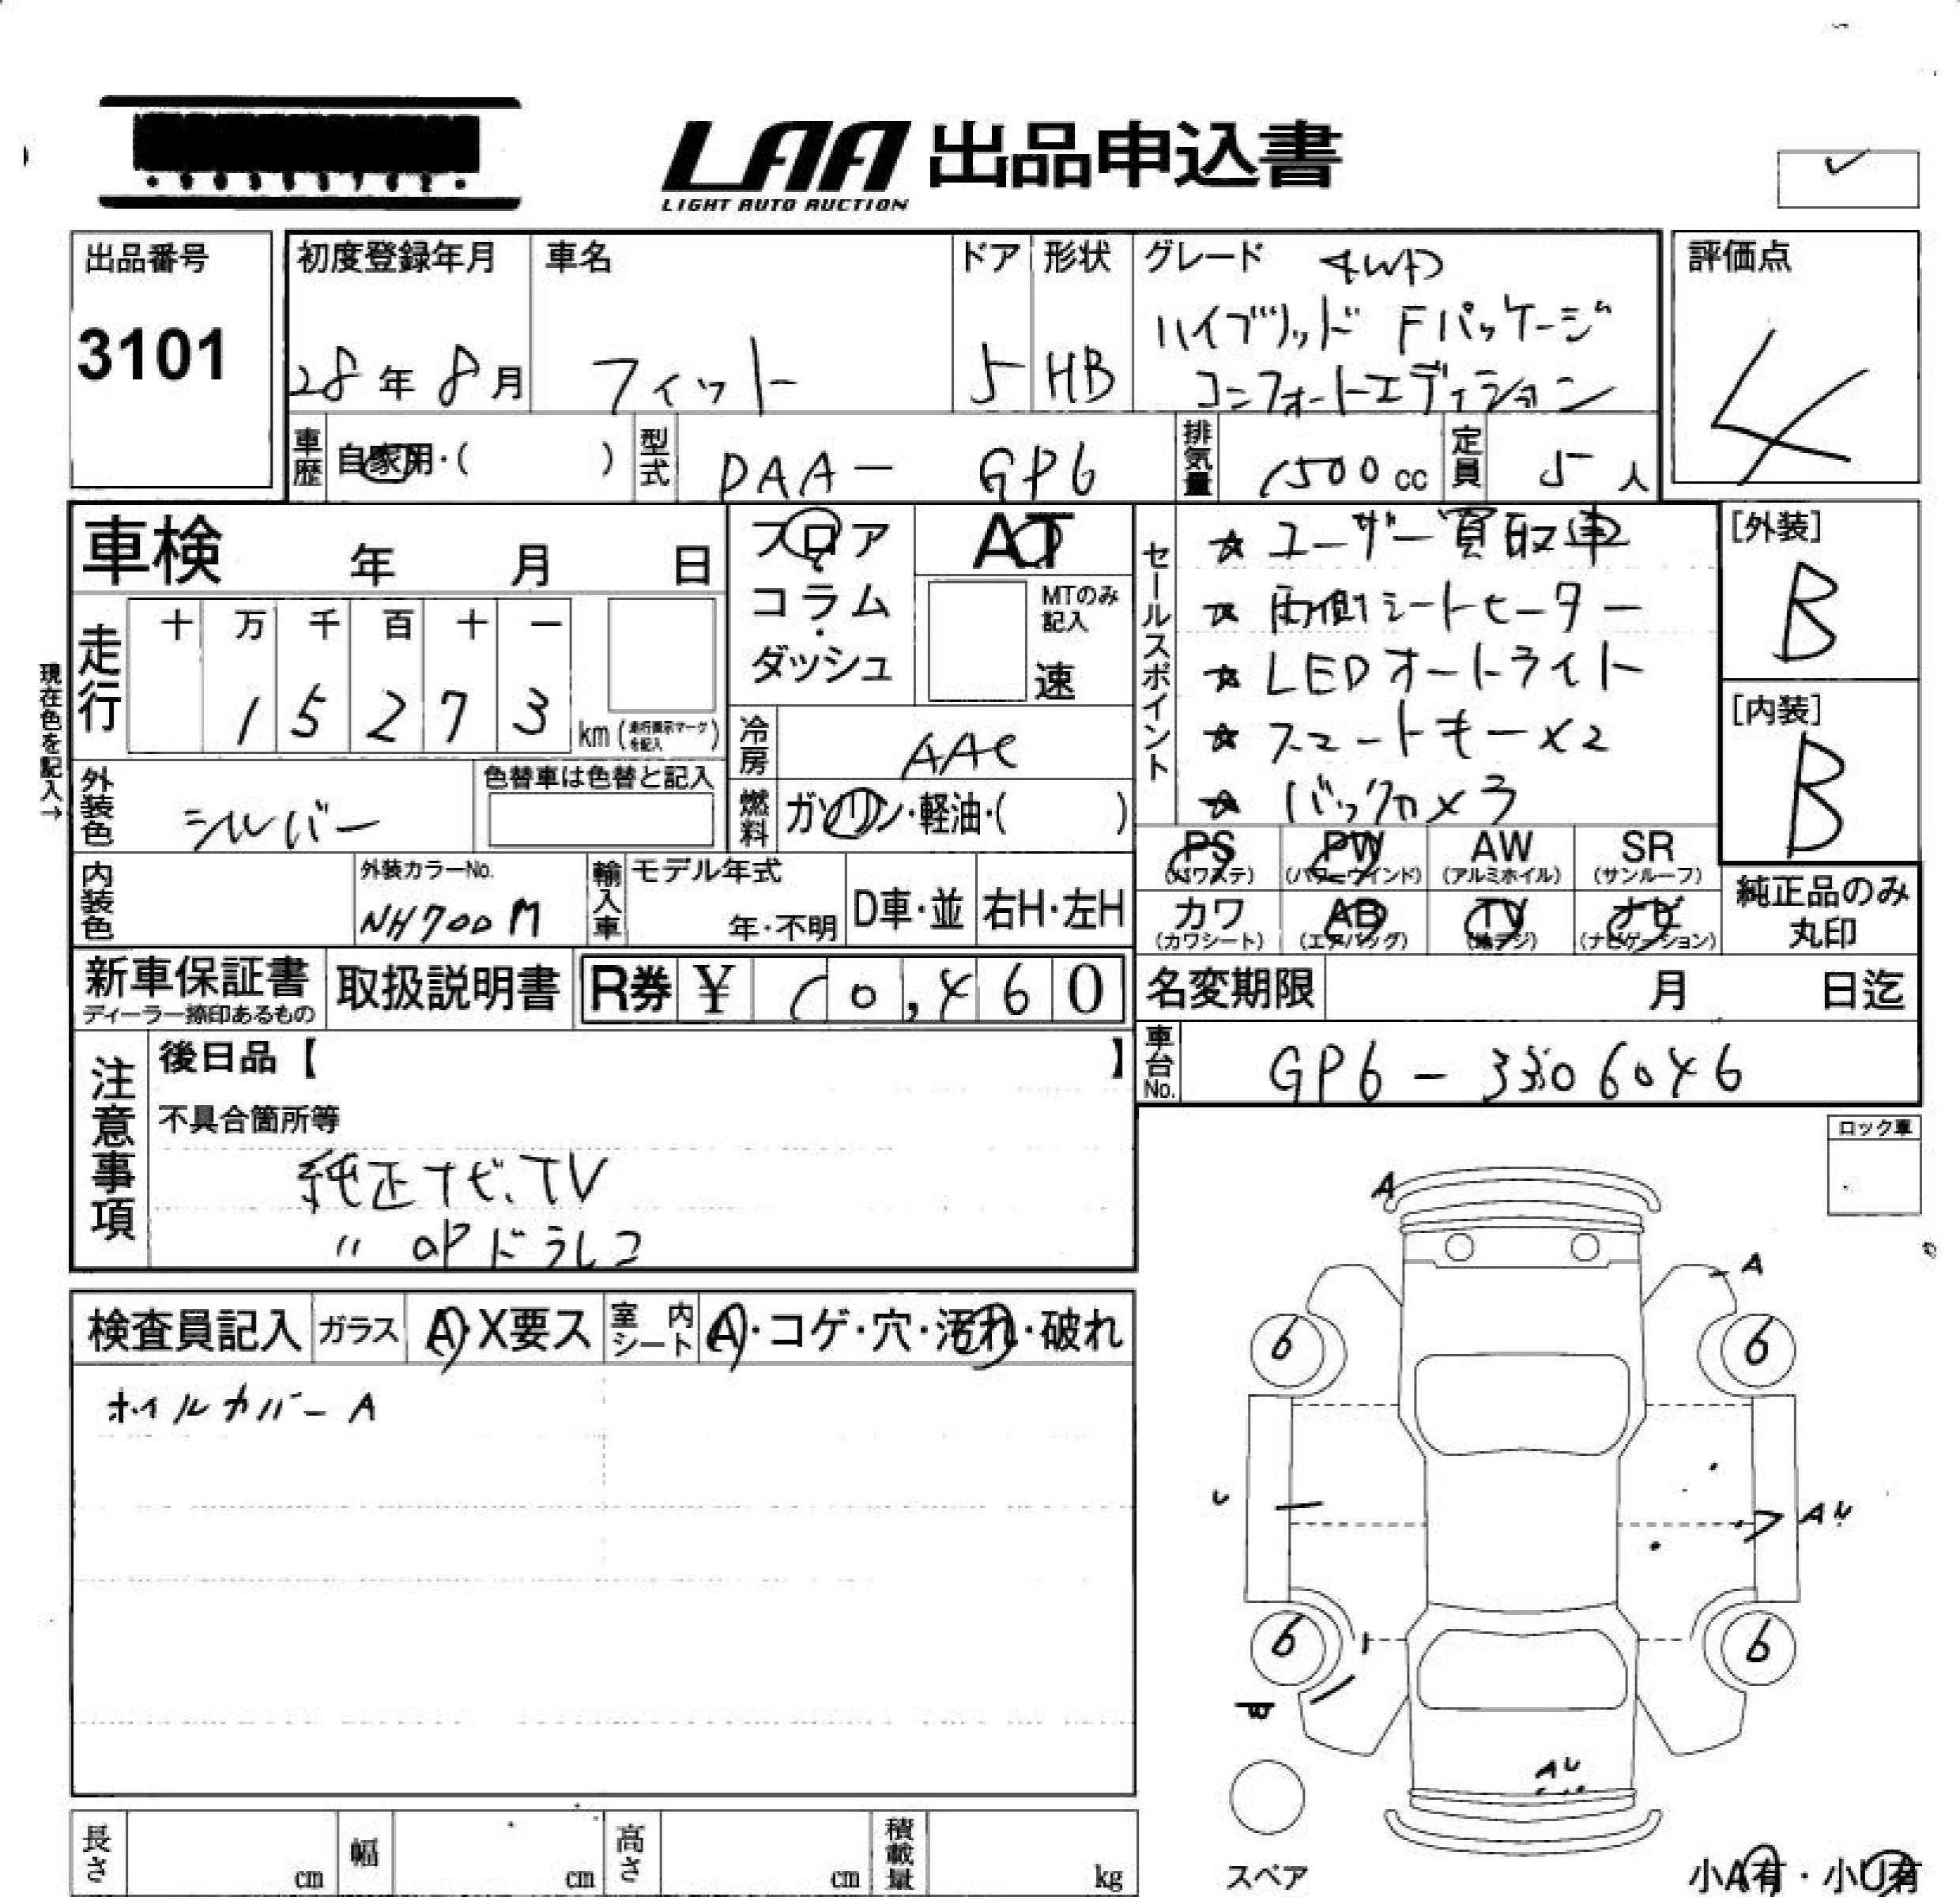 LAA 出品申込書
LIGHT AUTO AUCTION
出品番号
3101
初度登録年月
28年 8月
車名
フィット
ドア
5
形状
HB
グレード 4WD
ハイブリッド Fパッケージ
コンフォートエディション
評価点
4
車歴 自家用・( )
型式 DAA- GP6
排気量 1500cc
定員 5人
車検 年 月 日
フロア
コラム
・
ダッシュ
AT
MTのみ
記入
速
走行
十 万 千 百 十 一
1 5 2 7 3
km(走行表示マークを記入)
現在色を記入→
冷房 AAC
燃料 ガソリン・軽油・( )
外装色 シルバー
色替車は色替と記入
内装色
外装カラーNo.
NH700M
輸入車
モデル年式
年・不明
D車・並
右H・左H
セールスポイント
☆ ユーザー買取車
☆ 両側シートヒーター
☆ LEDオートライト
☆ スマートキー×2
☆ バックカメラ
[外装]
B
[内装]
B
PS (パワステ)
PW (パワーウインド)
AW (アルミホイル)
SR (サンルーフ)
カワ (カワシート)
AB (エアバッグ)
TV (地デジ)
ナビ (ナビゲーション)
純正品のみ
丸印
新車保証書
ディーラー捺印あるもの
取扱説明書
R券 ¥ 10,460
名変期限 月 日迄
車台No. GP6-3306046
注意事項
後日品【 】
不具合箇所等
純正ナビ、TV
〃 OPドラレコ
ロック車
検査員記入
ガラス A・X要ス
室内シート A・コゲ・穴・汚れ・破れ
ホイルカバーA
A
A
6
6
U
AU
6
6
AU
スペア
小A有・小U有
長さ cm
幅 cm
高さ cm
積載量 kg